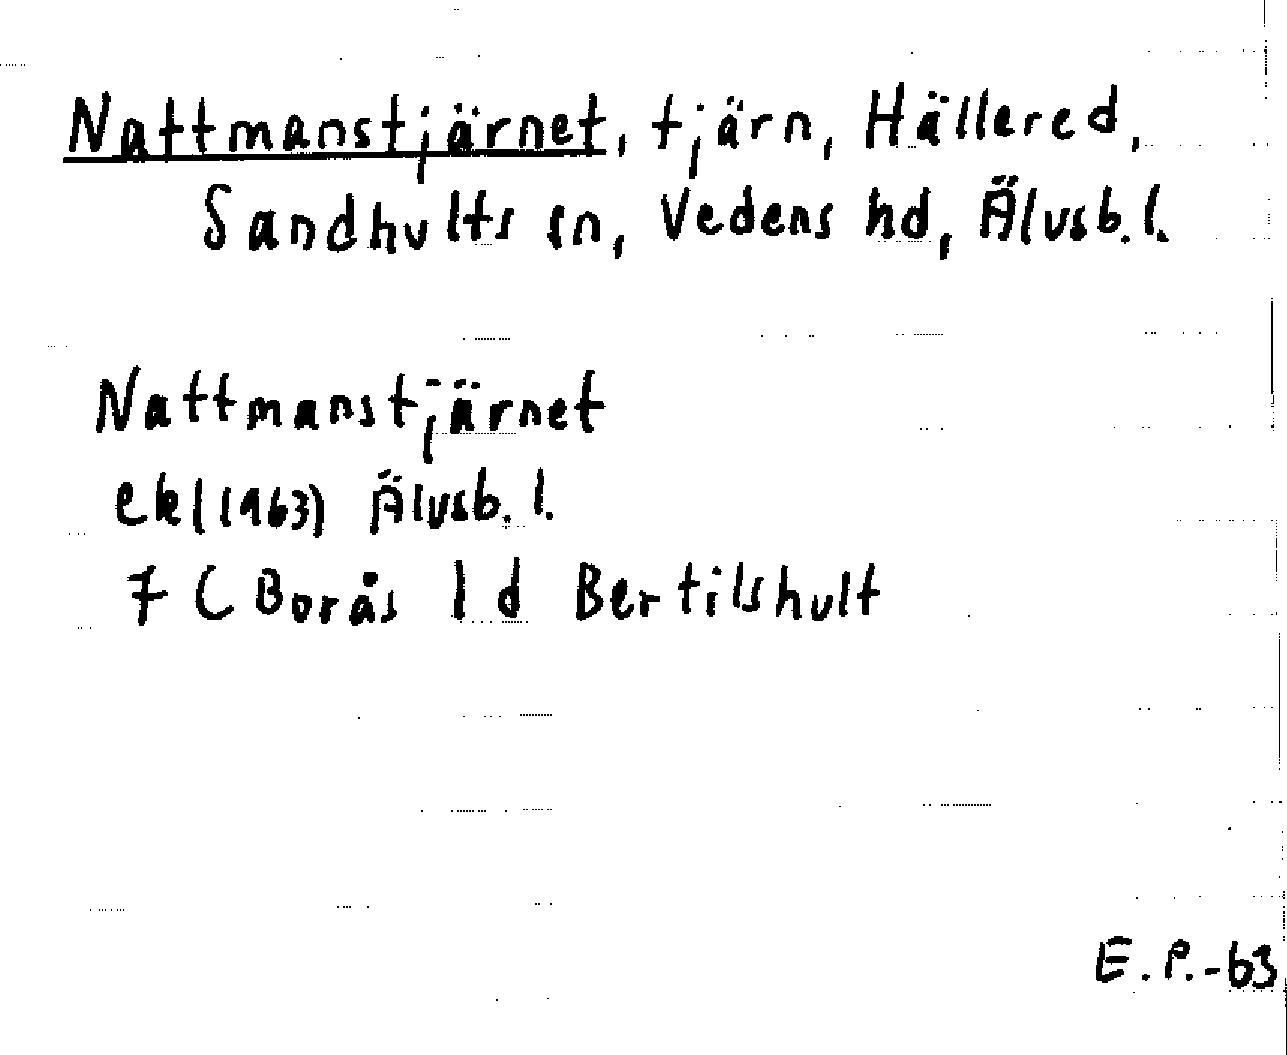 Nattmanstjärnet, tjärn, Hällered,
Sandhults sn, Vedens hd, Älvsb. l.
Nattmanstjärnet
ek (1963) Älvsb. l.
7 C Borås 1 d Bertilshult
E. P. -63